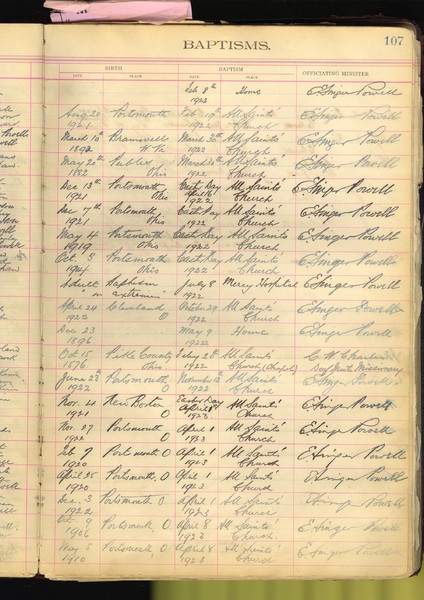 BAPTISMS.
107
BIRTH BAPTISM OFFICIATING MINISTER
DATE. PLACE DATE. PLACE.
Feb 8th Home E Ainger Powell
1922
Aug 20 Portsmouth Feb 19th All Saints E Ainger Powell
1921 1922 Church
March 10th Bramwell March 30th All Saints' E Ainger Powell
1892 W. Va 1922 Church
May 20th March 30th All Saints' E Ainger Powell
1882 Ohio 1922 Church
Dec 13th Portsmouth East. Day All Saints E Ainger Powell
1921 Ohio April 16 Church
1922
Dec 7th Portsmouth East. Day All Saints E Ainger Powell
1921 Ohio 1922 Church
May 4 Portsmouth East. Day All Saints' E Ainger Powell
1919 Ohio 1922 Church
Oct. 3 Portsmouth East Day All Saints' E Ainger Powell
1914 Ohio 1922 Church
Adult Baptism July 8 Mercy Hospital E Ainger Powell
in extremis 1922
April 24 Cleveland October 29 All Saints' E Ainger Powell
1922 O 1922 Church
Dec 23 May 9 Home E Ainger Powell
1896 1922
Oct 15 Pike County All Saints' C. W.
1876 Ohio 1922 Church (Chapel) Missionary
June 28th Portsmouth November 12 All Saints E Ainger Powell
1922 O 1922 Church
Nov. 4 New Boston Easter Day All Saints' E Ainger Powell
1921 O April 1st Church
1923
Nov 27 Portsmouth April 1 All Saints' E Ainger Powell
1922 O 1923 Church
Feb 7 Portsmouth O April 1 All Saints' E Ainger Powell
1920 1923 Church
April 25 Portsmouth, O April 1 All Saints' E Ainger Powell
1920 1923 Church
Dec. 3 Portsmouth O April 1 All Saints' E Ainger Powell
1922 1923 Church
Oct. 9 Portsmouth, O. April 8 All Saints' E Ainger Powell
1906 1923 Church.
May 5 Portsmouth, O. April 8 All Saints' E Ainger Powell
1910 1923 Church